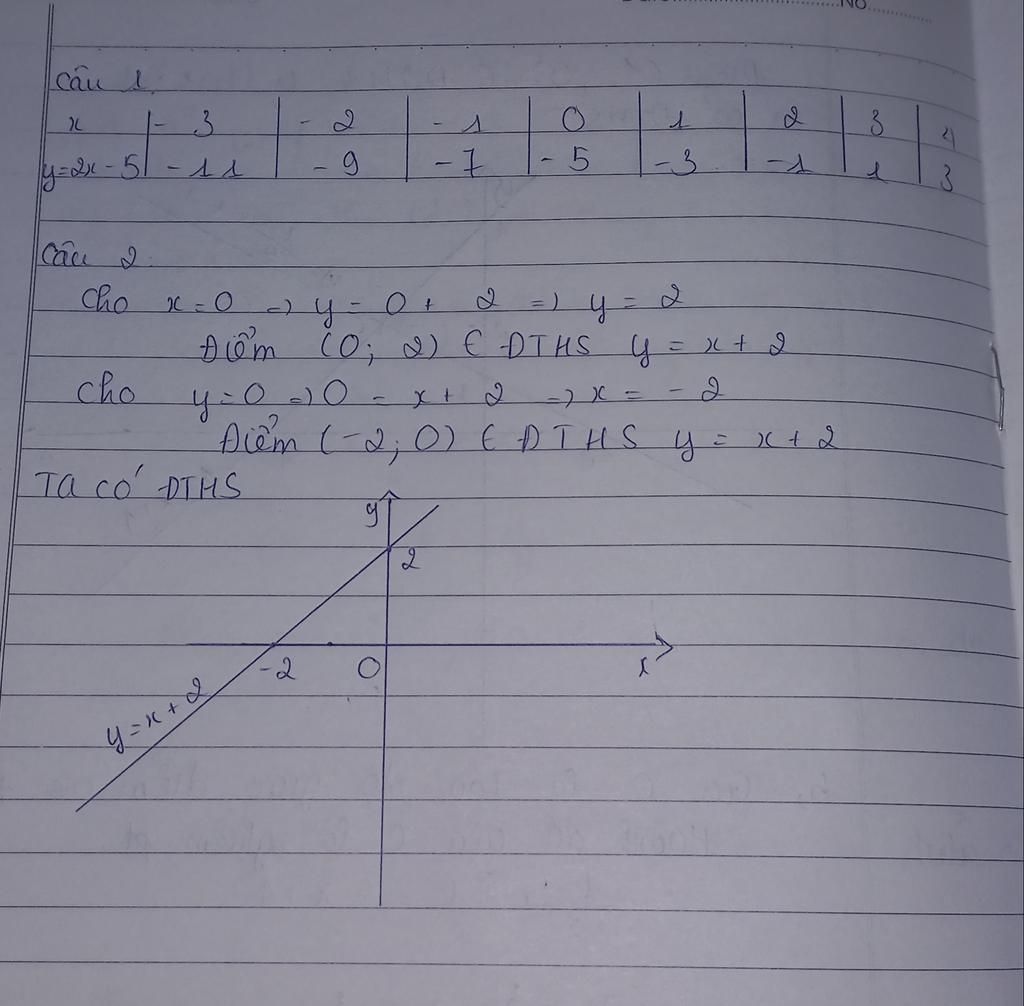 No
Câu 1.
x | -3 | -2 | -1 | 0 | 1 | 2 | 3 | 4
y=2x-5 | -11 | -9 | -7 | -5 | -3 | -1 | 1 | 3
Câu 2.
Cho x=0 => y = 0 + 2 => y = 2
Điểm (0; 2) ∈ ĐTHS y = x + 2
Cho y=0 => 0 = x + 2 => x = -2
Điểm (-2; 0) ∈ ĐTHS y = x + 2
Ta có ĐTHS
y
2
-2 0 x
y = x + 2